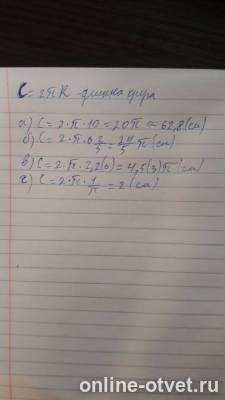 C = 2πR - длина круга
а) C = 2·π·10 = 20π ≈ 62,8 (см)
б) C = 2·π· π (см)
в) C = 2·π·2,2(6) = 4,5(3)π (см)
г) C = 2·π·1/π = 2 (см)
online-otvet.ru